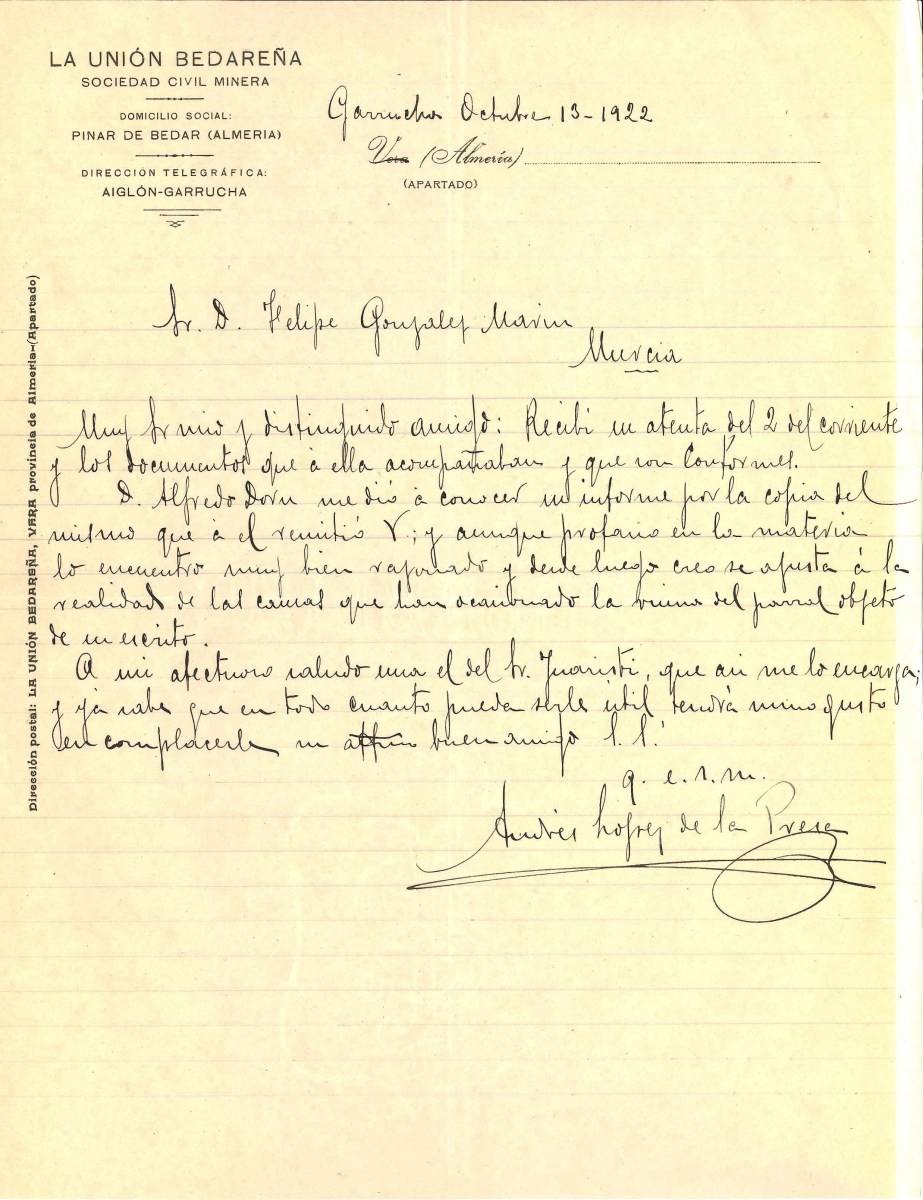 LA UNIÓN BEDAREÑA
SOCIEDAD CIVIL MINERA
DOMICILIO SOCIAL:
PINAR DE BEDAR (ALMERIA)
DIRECCIÓN TELEGRÁFICA:
AIGLÓN-GARRUCHA
Garrucha Octubre 13-1922
Vera (Almería)
(APARTADO)
Dirección postal: LA UNIÓN BEDAREÑA, VARA provincia de Almería-(Apartado)
Sr. D. Felipe Gonzalez Marin
Murcia
Muy Sr mio y distinguido amigo: Recibí su atenta del 2 del corriente
y los documentos que á ella acompañaban y que son Conformes.
D. Alfredo Dorn me dió á conocer su informe por la copia del
mismo que á el remitió V; y aunque profano en la materia
lo encuentro muy bien razonado y desde luego creo se ajusta á la
realidad de las causas que han ocasionado la ruina del parral objeto
de su escrito.
A mi afectuoso saludo una el del Sr. Juaristi, que asi me lo encarga;
y yá sabe que en todo cuanto pueda serle útil tendrá sumo gusto
en complacerle su buen amigo S. S.
q. e. s. m.
Andrés López de la Presa